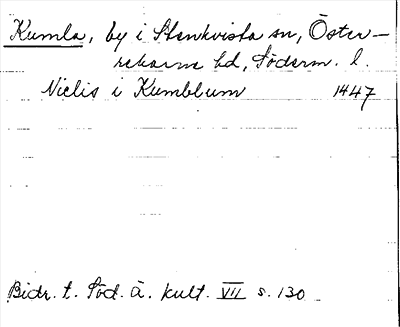 Kumla, by i Stenkvista sn, Öster-
rekarne hd, Söderm. l.
Niclis i Kumblum 1447
Bidr. t. Söd. ä. kult. VII s. 130